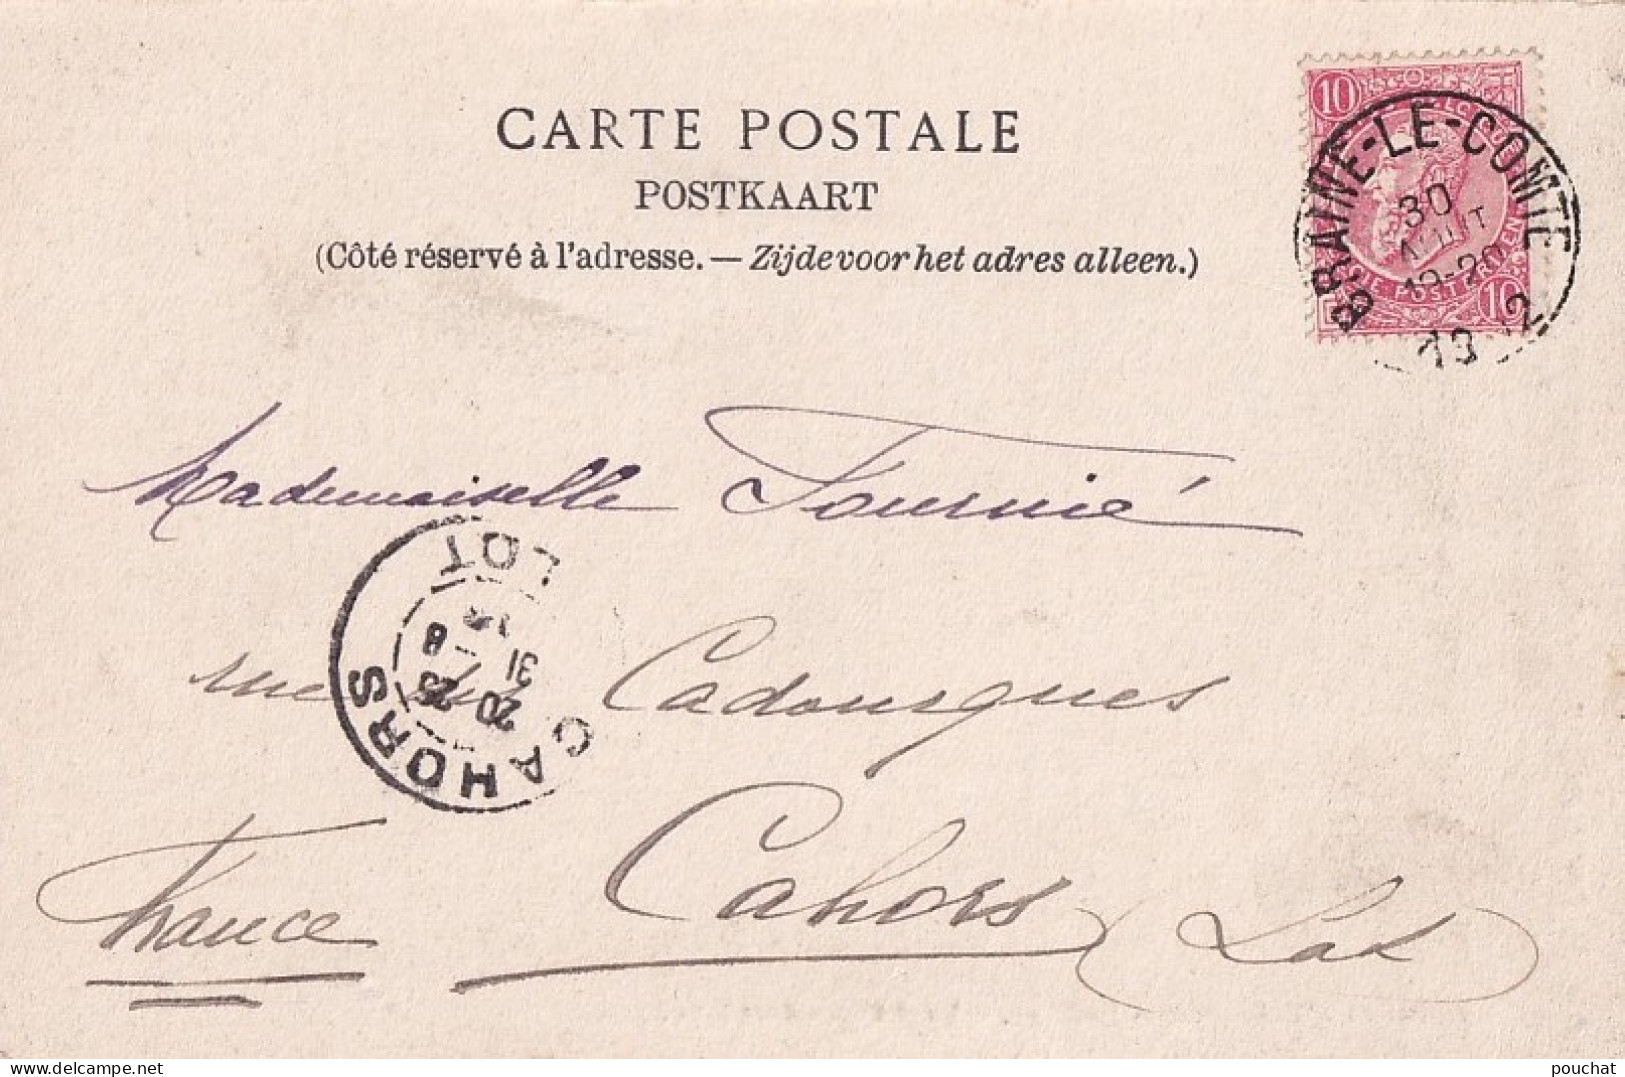 CARTE POSTALE
POSTKAART
(Côté réservé à l'adresse. — Zijde voor het adres alleen.)
10
BELGIQUE
POSTERIJEN
10
BRAINE-LE-COMTE
30
AOUT
19-20
Mademoiselle Fournié
rue des Cadourques
Cahors (Lot)
France
CAHORS
LOT
20 25
31 8
pouchat